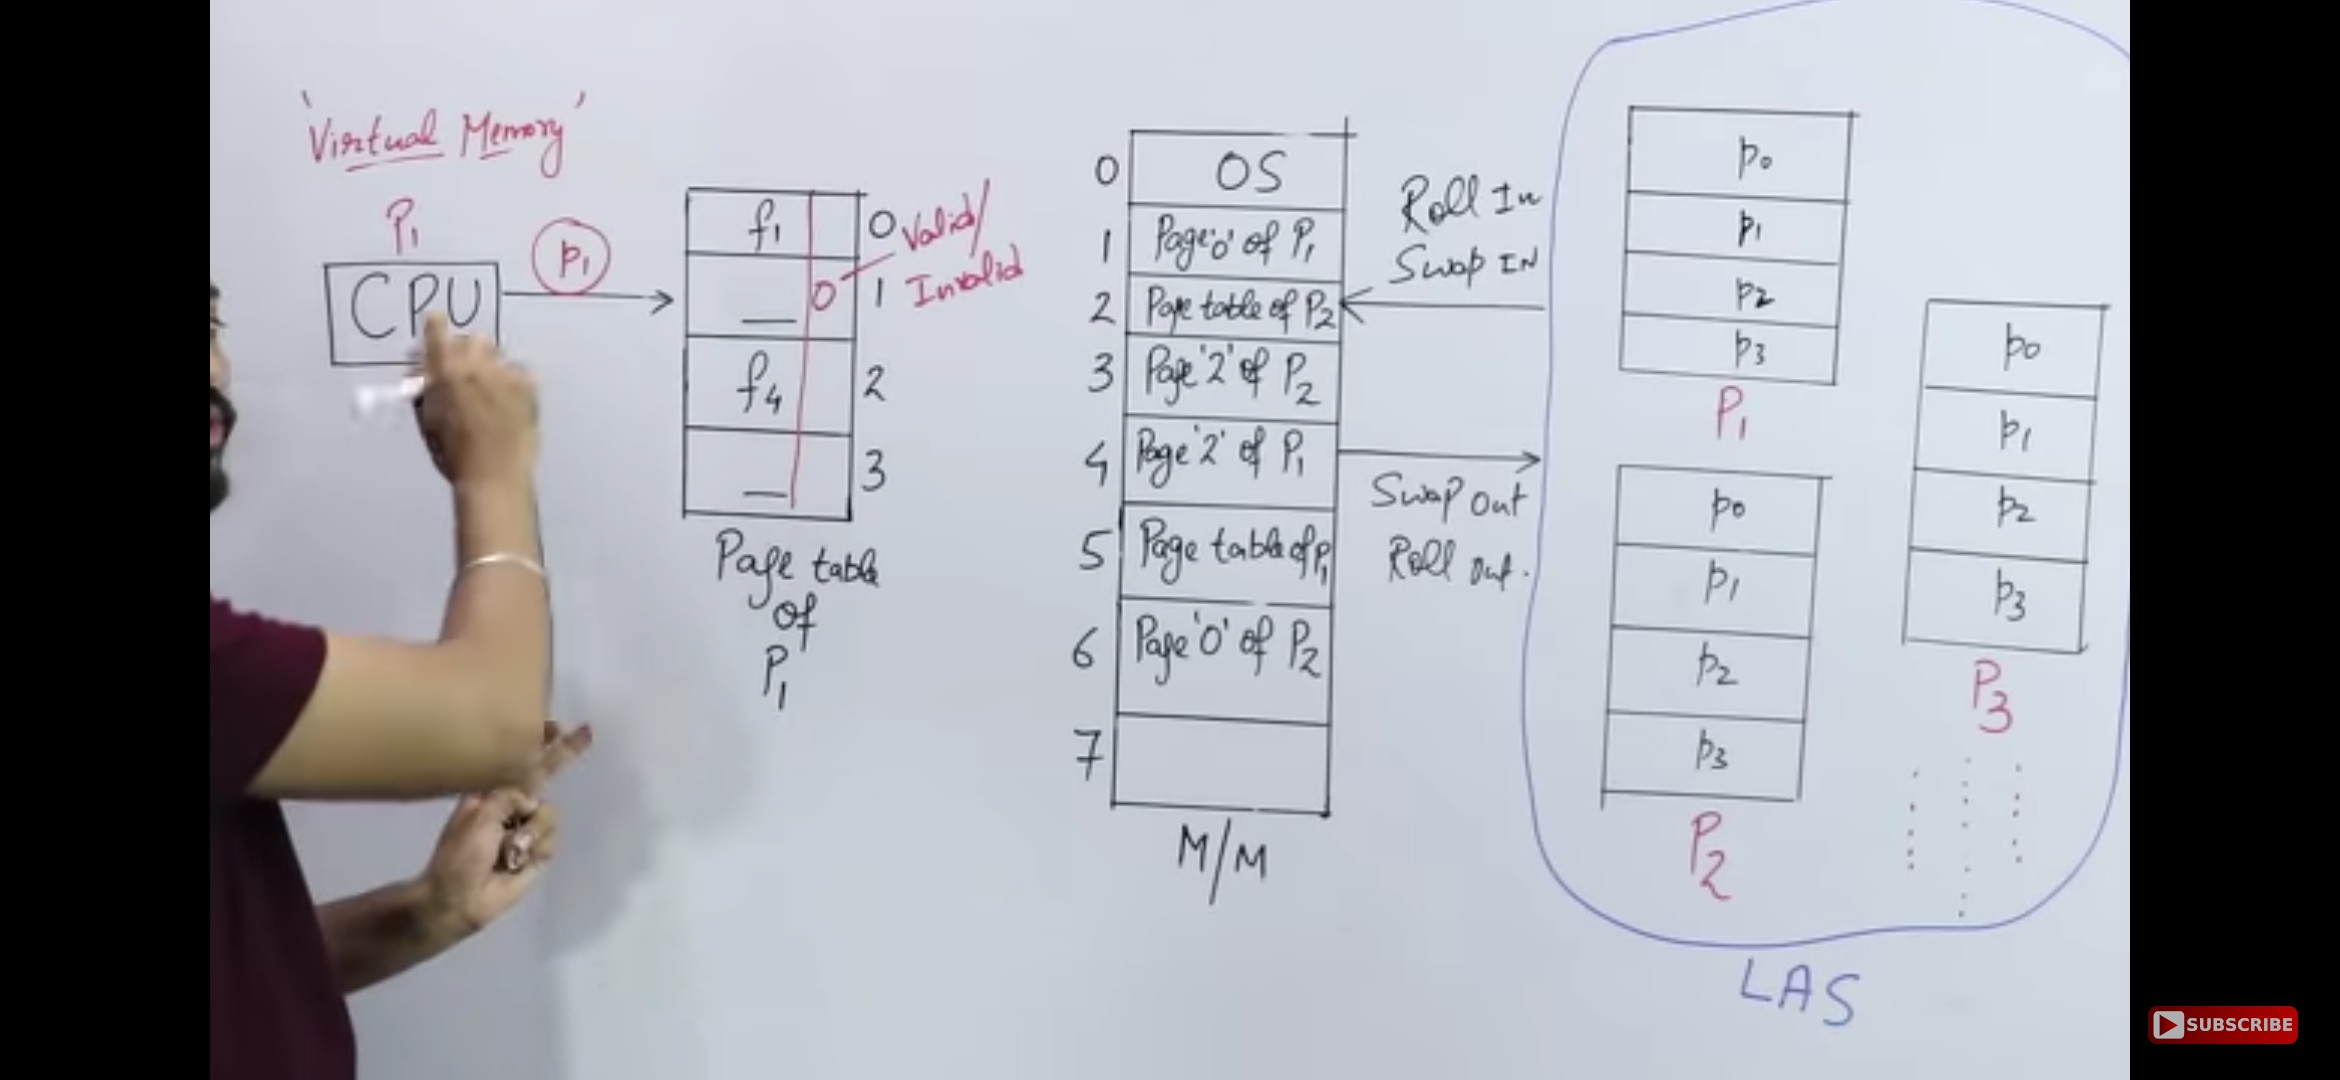 'Virtual Memory'
P1
CPU
p1
f1
0
Valid/
Invalid
0
1
f4
2
3
Page table
of
P1
0
OS
1
Page '0' of P1
2
Page table of P2
3
Page '2' of P2
4
Page '2' of P1
5
Page table of P1
6
Page '0' of P2
7
M/M
Roll In
Swap IN
Swap Out
Roll out.
p0
p1
p2
p3
P1
p0
p1
p2
p3
P2
p0
p1
p2
p3
P3
LAS
SUBSCRIBE